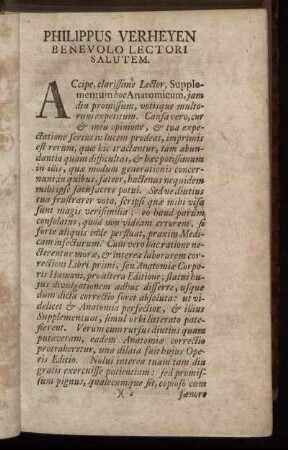 PHILIPPUS VERHEYEN
BENEVOLO LECTORI
SALUTEM.
ACcipe, clarissime Lector, Supple-
mentum hoc Anatomicum, jam
diu promissum, votisque multo-
rum expetitum. Causa vero, cur
& meâ opinione, & tua expe-
ctatione serius in lucem prodeat, imprimis
est rerum, quæ hic tractantur, tam abun-
dantia quàm difficultas, & hæc potissimum
in iis, quæ modum generationis concer-
nunt: in quibus, fateor, hactenus nequidem
mihi ipse satisfacere potui. Sed ne diutius
tua frustrarer vota, scripsi quæ mihi visa
sunt magis verisimilia: eo haud parum
consolatus, quòd non videam errorem, si
forte aliquis inde persluat, praxim Medi-
cam infecturum. Cùm vero hac ratione ne-
cterentur moræ, & interea laborarem cor-
rectioni Libri primi, seu Anatomiæ Corpo-
ris Humani, pro altera Editione; statui hu-
jus divulgationem adhuc differre, usque
dum dicta correctio foret absoluta: ut vi-
delicet & Anatomia perfectior, & illius
Supplementum, simul orbi litterato pate-
fierent. Verùm cum rursus diutius quàm
putaveram, eadem Anatomiæ correctio
protraheretur, una dilata fuit hujus Ope-
ris Editio. Nolui interea tuam tam diu
gratis exercuisse patientiam: sed promis-
sum pignus, qualecumque sit, copioso cum
X 2 fœnore